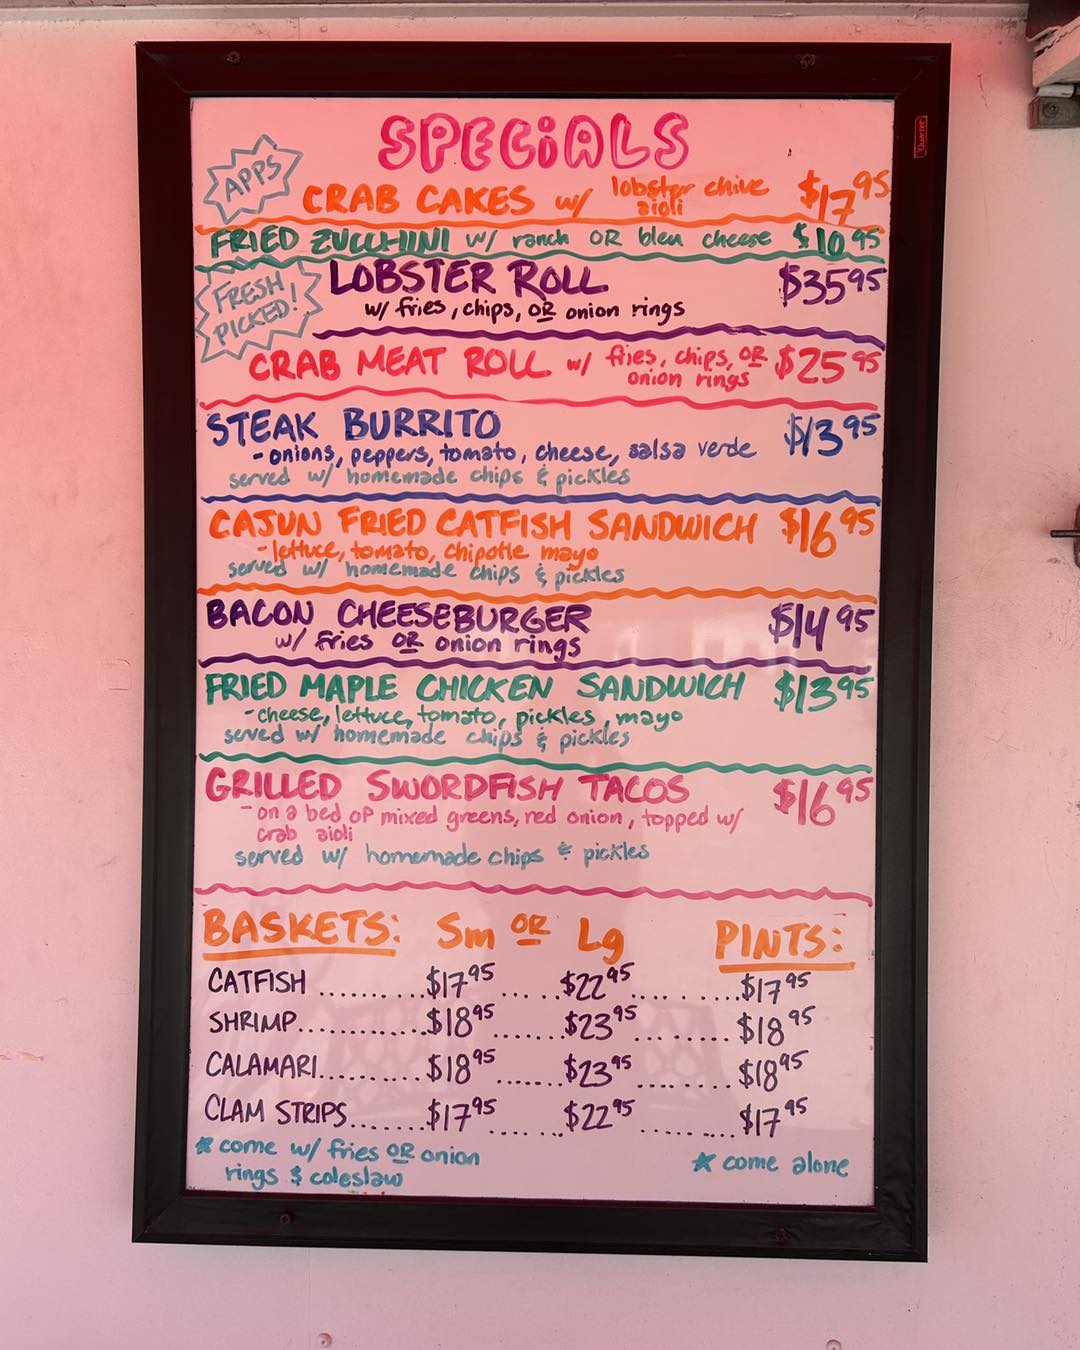 SPECiALS
APPS
CRAB CAKES w/ lobster chive aioli $17.95
FRIED ZUCCHINI w/ ranch OR bleu cheese $10.95
FRESH PICKED!
LOBSTER ROLL $35.95
w/ fries, chips, OR onion rings
CRAB MEAT ROLL w/ fries, chips, OR onion rings $25.95
STEAK BURRITO $13.95
- onions, peppers, tomato, cheese, salsa verde
served w/ homemade chips & pickles
CAJUN FRIED CATFISH SANDWICH $16.95
- lettuce, tomato, chipotle mayo
served w/ homemade chips & pickles
BACON CHEESEBURGER $14.95
w/ fries OR onion rings
FRIED MAPLE CHICKEN SANDWICH $13.95
- cheese, lettuce, tomato, pickles, mayo
served w/ homemade chips & pickles
GRILLED SWORDFISH TACOS $16.95
- on a bed of mixed greens, red onion, topped w/
crab aioli
served w/ homemade chips & pickles
BASKETS: Sm OR Lg PINTS:
CATFISH ........... $17.95 ...... $22.95 .... ...... $17.95
SHRIMP............. $18.95 ....... $23.95 .......... $18.95
CALAMARI.......... $18.95 ....... $23.95 .......... $18.95
CLAM STRIPS....... $17.95 ....... $22.95 .......... $17.95
* come w/ fries OR onion
rings & coleslaw
* come alone
Quartet